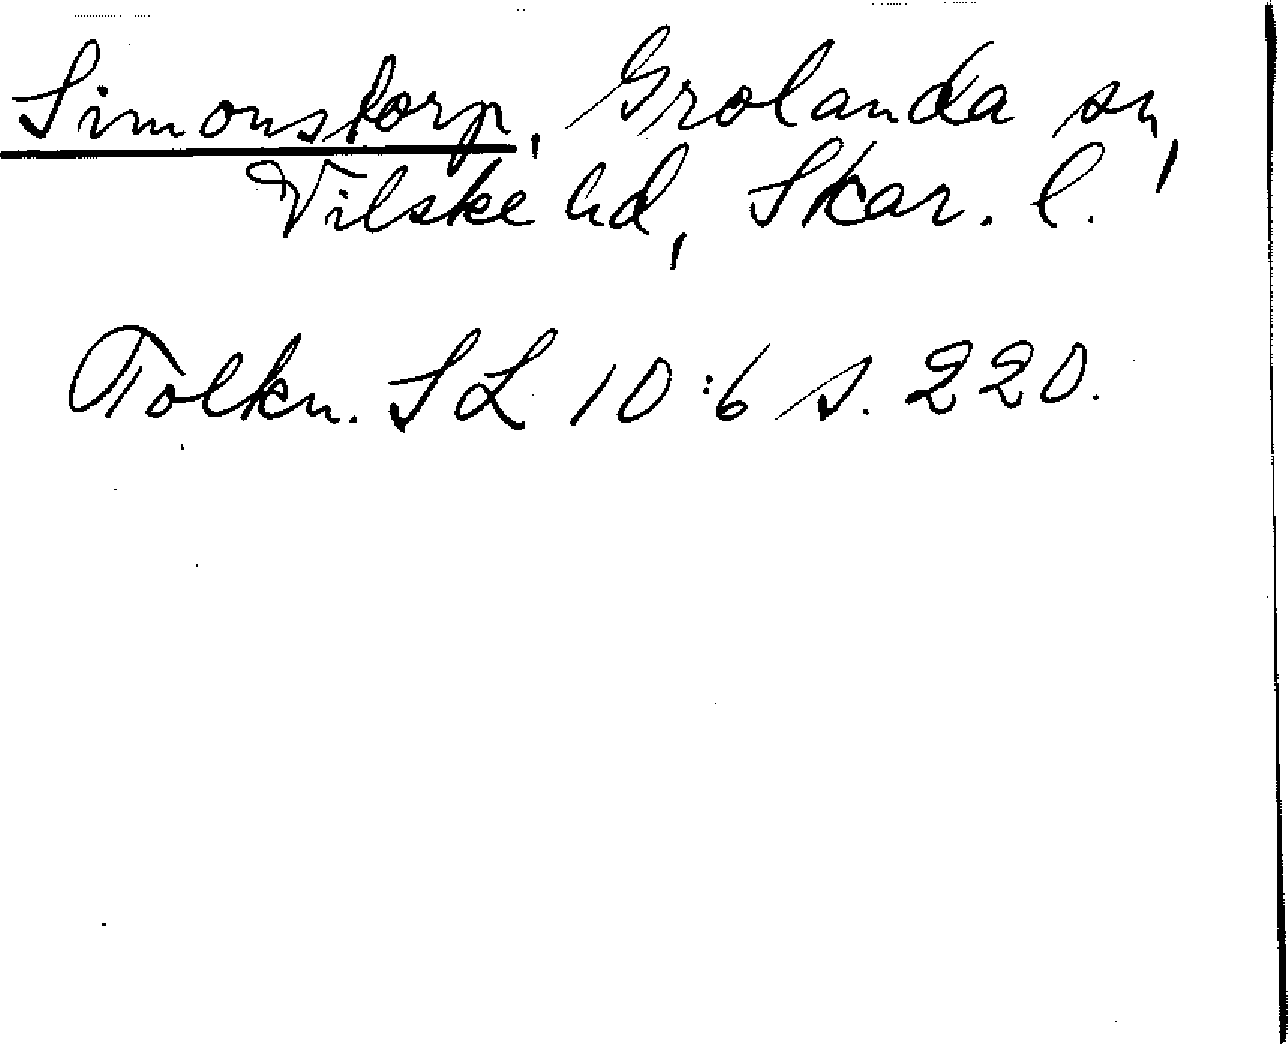 Simonstorp, Grolanda sn,
Vilske hd, Skar. l.
Tolkn. SL 10:6 s. 220.